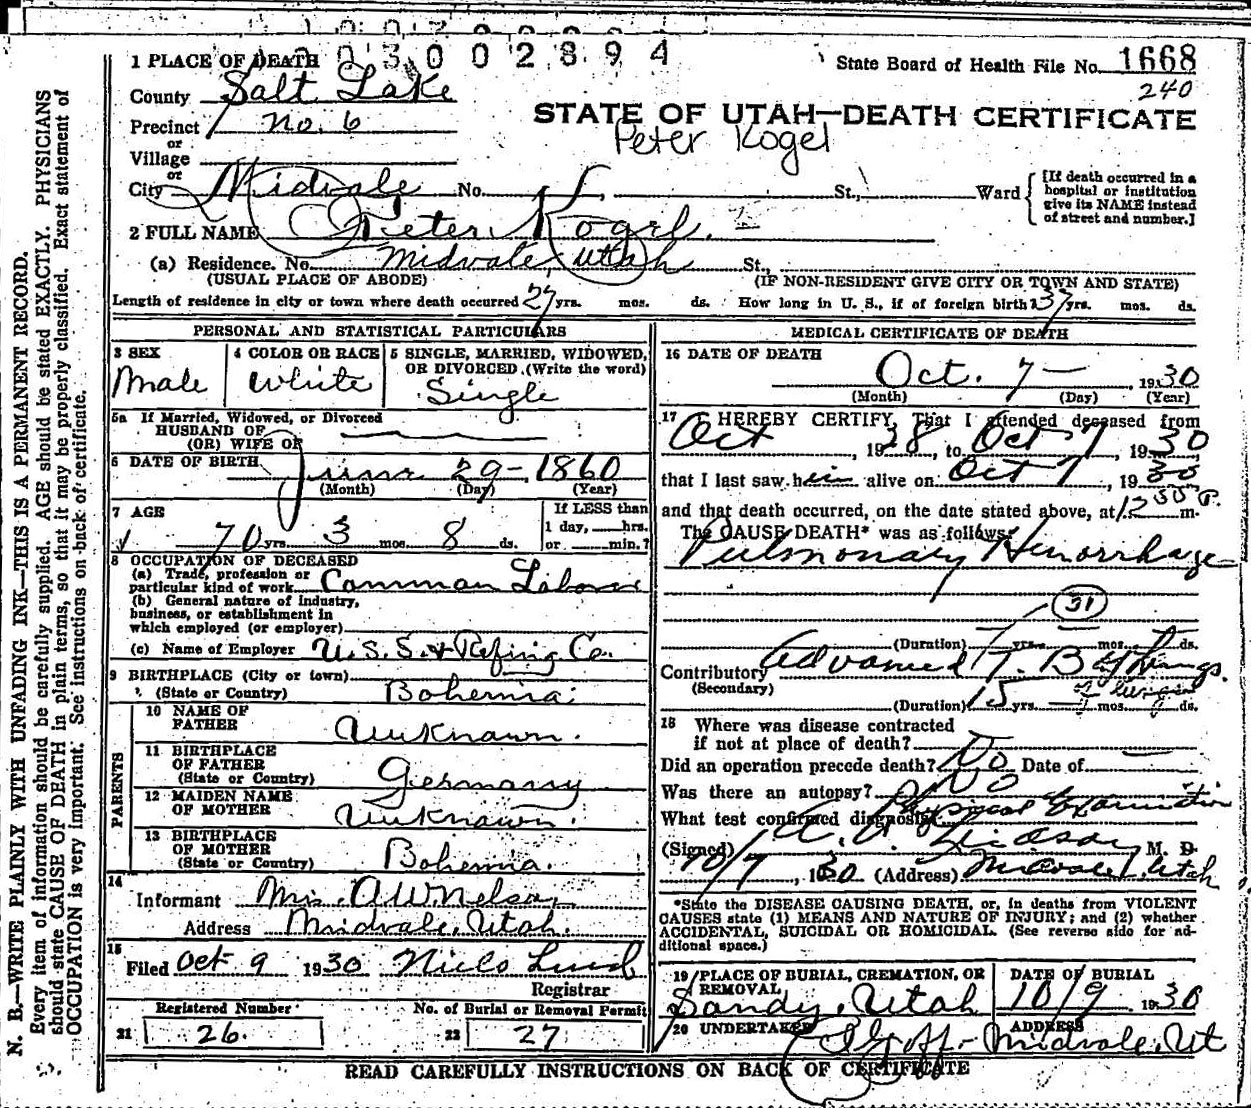 003002894
1 PLACE OF DEATH
State Board of Health File No. 1668
240
County Salt Lake
STATE OF UTAH—DEATH CERTIFICATE
Precinct No. 6
Peter Kogel
or
Village
or
City Midvale No. St., Ward
[If death occurred in a hospital or institution give its NAME instead of street and number.]
2 FULL NAME Peter Kogel.
(a) Residence. No. Midvale, Utah St.,
(USUAL PLACE OF ABODE) (IF NON-RESIDENT GIVE CITY OR TOWN AND STATE)
Length of residence in city or town where death occurred 27 yrs. mos. ds. How long in U. S., if of foreign birth? 37 yrs. mos. ds.
PERSONAL AND STATISTICAL PARTICULARS
3 SEX
Male
4 COLOR OR RACE
White
5 SINGLE, MARRIED, WIDOWED, OR DIVORCED. (Write the word)
Single
5a If Married, Widowed, or Divorced
HUSBAND OF
(OR) WIFE OF
6 DATE OF BIRTH June 29-, 1860
(Month) (Day) (Year)
7 AGE
70 yrs. 3 mos. 8 ds.
If LESS than
1 day, hrs.
or min.?
8 OCCUPATION OF DECEASED
(a) Trade, profession or
particular kind of work Common Labor
(b) General nature of industry,
business, or establishment in
which employed (or employer)
(c) Name of Employer U.S.S. & Refing Co.
9 BIRTHPLACE (City or town)
(State or Country) Bohemia
PARENTS
10 NAME OF
FATHER Unknown.
11 BIRTHPLACE
OF FATHER
(State or Country) Germany
12 MAIDEN NAME
OF MOTHER Unknown.
13 BIRTHPLACE
OF MOTHER
(State or Country) Bohemia.
14
Informant Mrs. A W Nelson
Address Midvale, Utah.
15
Filed Oct 9 1930 Niels Lind
Registrar
Registered Number
21 26
No. of Burial or Removal Permit
22 27
MEDICAL CERTIFICATE OF DEATH
16 DATE OF DEATH
Oct. 7— , 1930
(Month) (Day) (Year)
17 I HEREBY CERTIFY, That I attended deceased from
Oct , 1928 to Oct 7, 1930
that I last saw him alive on Oct 7, 1930
and that death occurred, on the date stated above, at 12 30 P. m.
The CAUSE DEATH* was as follows:
Pulmonary Hemorrhage
31
(Duration) yrs. mos. ds.
Contributory Advanced T. B of Lungs.
(Secondary) of lungs
(Duration) 15 yrs. mos. ds.
18 Where was disease contracted
if not at place of death?
Did an operation precede death? No Date of
Was there an autopsy? No
What test confirmed diagnosis? Physical Examination
(Signed) M. D.
10/7, 1930 (Address) Midvale, Utah
*State the DISEASE CAUSING DEATH, or, in deaths from VIOLENT
CAUSES state (1) MEANS AND NATURE OF INJURY; and (2) whether
ACCIDENTAL, SUICIDAL OR HOMICIDAL. (See reverse side for ad-
ditional space.)
19 PLACE OF BURIAL, CREMATION, OR
REMOVAL
Sandy, Utah
DATE OF BURIAL
10/9 1930
20 UNDERTAKER
Goff-
ADDRESS
Midvale, Ut
READ CAREFULLY INSTRUCTIONS ON BACK OF CERTIFICATE
N. B.—WRITE PLAINLY WITH UNFADING INK—THIS IS A PERMANENT RECORD.
Every item of information should be carefully supplied. AGE should be stated EXACTLY. PHYSICIANS
should state CAUSE OF DEATH in plain terms, so that it may be properly classified. Exact statement of
OCCUPATION is very important. See instructions on back of certificate.